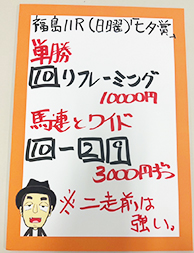 福島11R(日曜)「七夕賞」
単勝
10リフレーミング
10000円
馬連とワイド
10-2 9
3000円ずつ
※二走前は
強い。